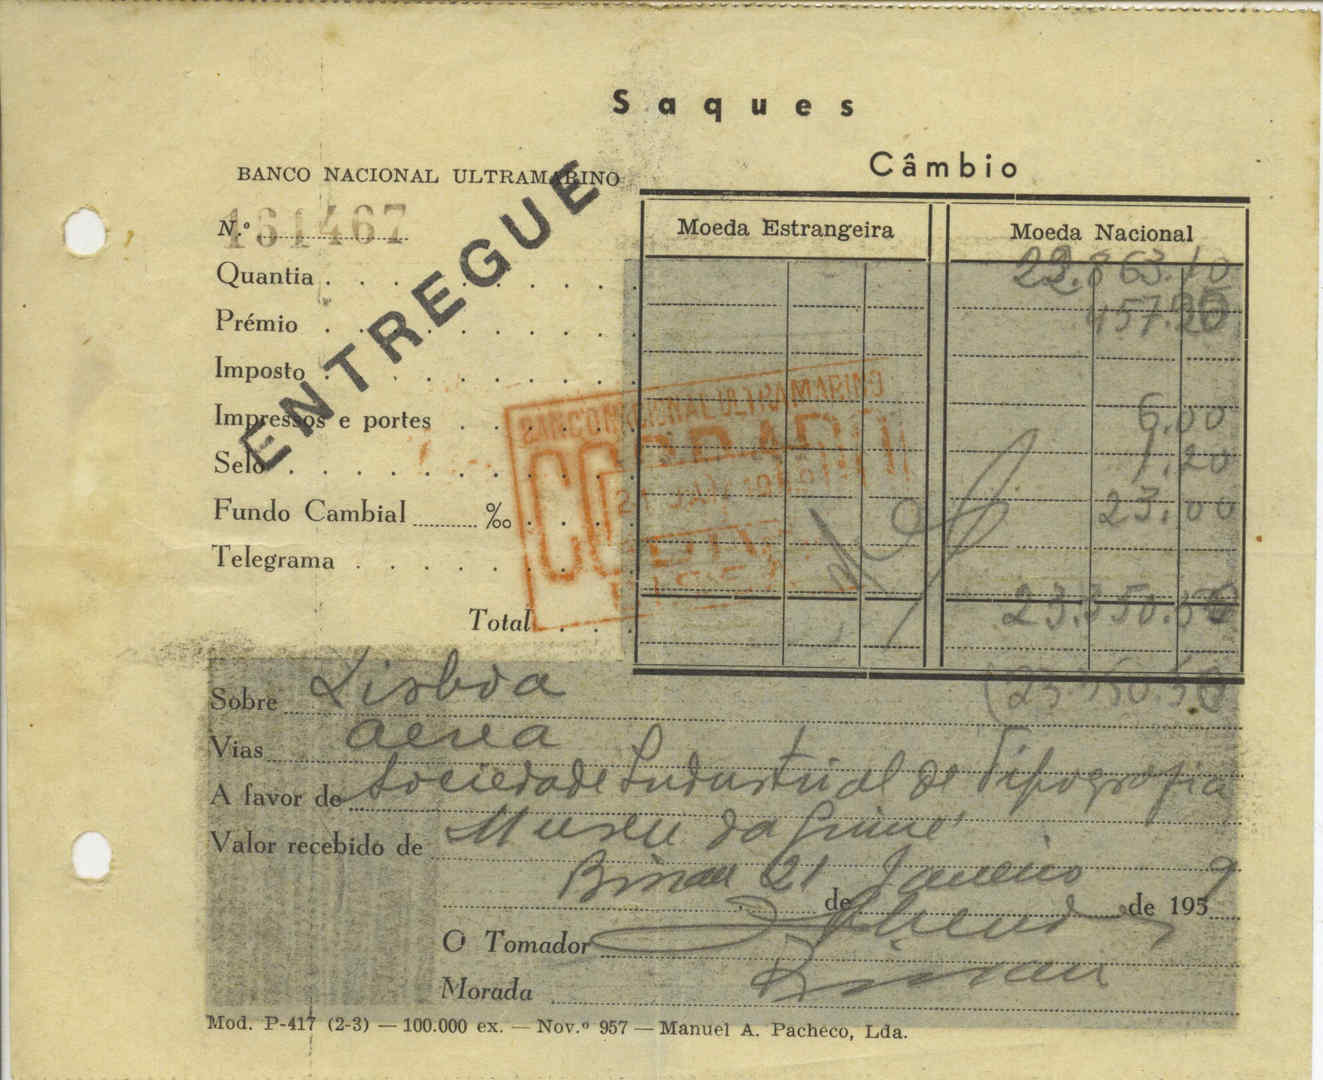 Saques
Câmbio
BANCO NACIONAL ULTRAMARINO
N.º 161467
ENTREGUE
Moeda Estrangeira Moeda Nacional
Quantia 22.863.10
Prémio 457.20
Imposto
Impressos e portes 6.00
Selo 1.20
Fundo Cambial ‰ 23.00
Telegrama
Total 23.350.50
BANCO NACIONAL ULTRAMARINO
21 JAN
(23.350.50
Sobre Lisboa
Vias aerea
A favor de Sociedade Industrial de Tipografia
Valor recebido de Museu da Guiné
Bissau 21 de Janeiro de 1959
O Tomador
Morada Bissau
Mod. P-417 (2-3) — 100.000 ex. — Nov.º 957 — Manuel A. Pacheco, Lda.